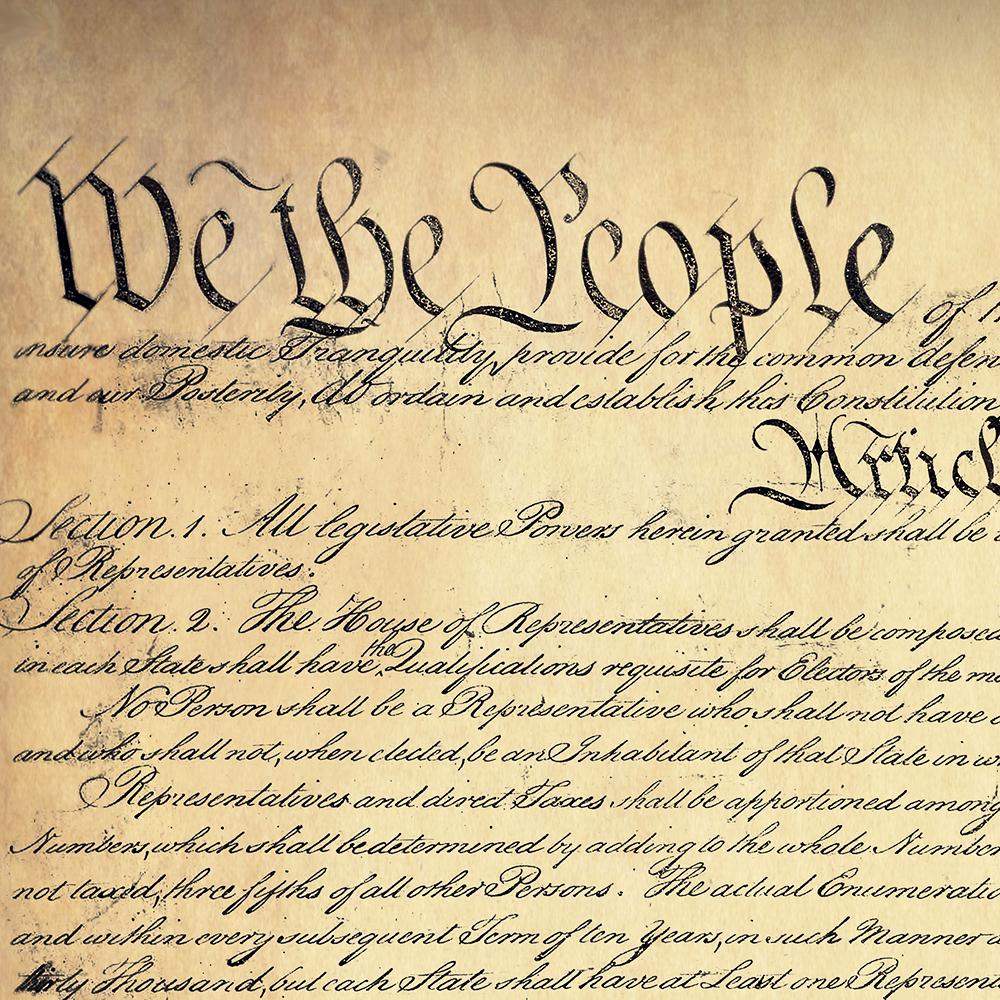 We the People of
nsure domestic Tranquility, provide for the common defen
and our Posterity, do ordain and establish this Constitution
Articl
Section. 1. All legislative Powers herein granted shall be
of Representatives.
Section. 2. The House of Representatives shall be composed
in each State shall have the Qualifications requisite for Electors of the mo
No Person shall be a Representative who shall not have a
and who shall not, when elected, be an Inhabitant of that State in w
Representatives and direct Taxes shall be apportioned among
Numbers, which shall be determined by adding to the whole Number
not taxed, three fifths of all other Persons. The actual Enumeratio
and within every subsequent Term of ten Years, in such Manner a
thirty Thousand, but each State shall have at Least one Represen